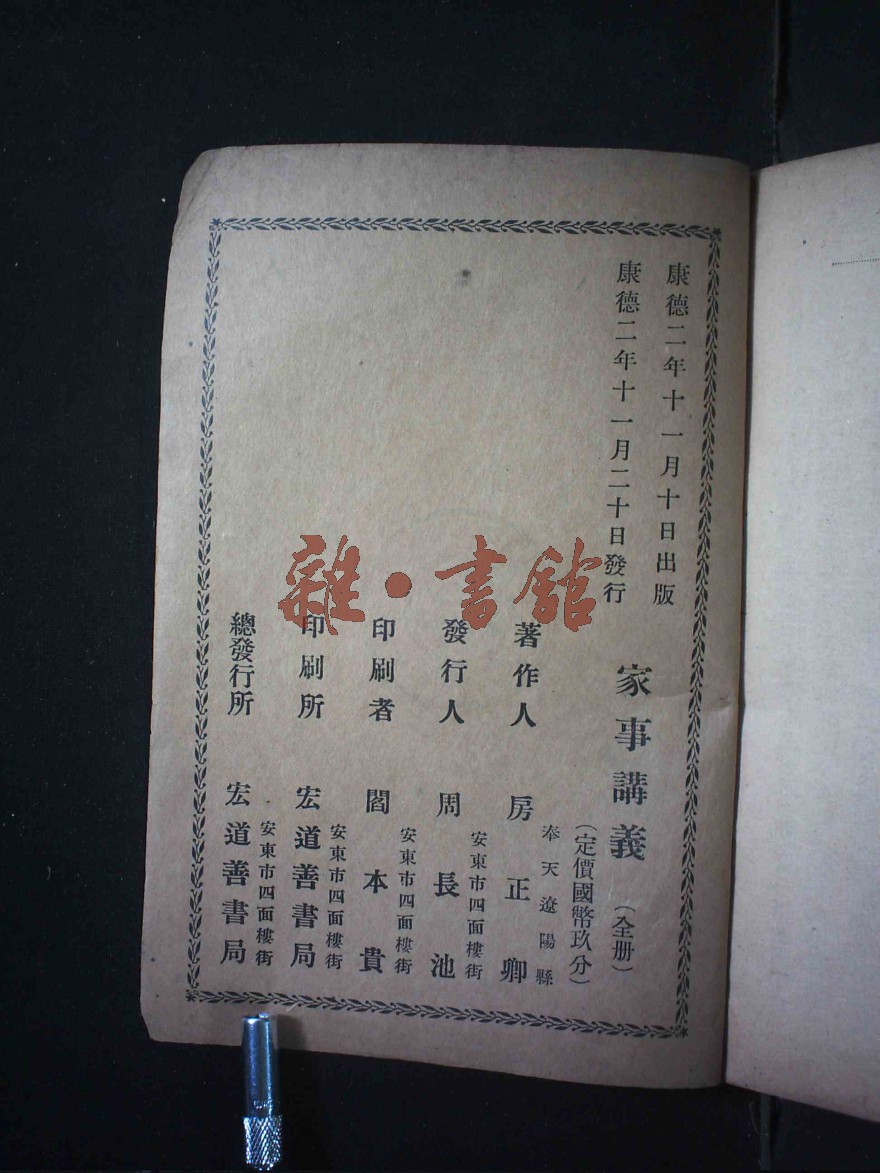 康德二年十一月十日出版
康德二年十一月二十日發行
家事講義（全册）
（定價國幣玖分）
奉天遼陽縣
著作人 房正卿
安東市四面樓街
發行人 周長池
安東市四面樓街
印刷者 閻本貴
安東市四面樓街
印刷所 宏道善書局
安東市四面樓街
總發行所 宏道善書局
雜·書館